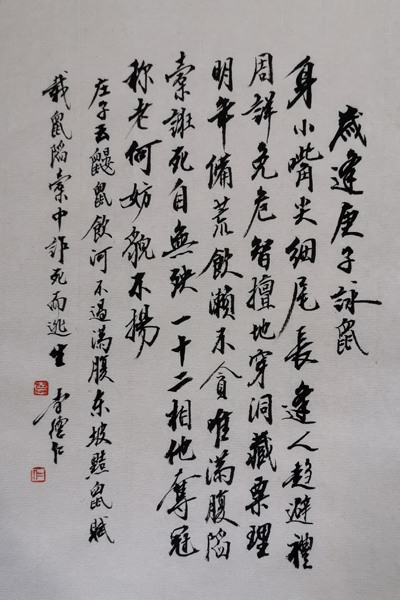 歲逢庚子詠鼠
身小嘴尖細尾長逢人趋避禮
周詳免危智擅地穿洞藏粟理
明年備荒飲瀕不貪唯滿腹陷
橐誑死自無殃一十二相他奪冠
称老何妨貌不揚
庄子云鼴鼠飲河不過滿腹东坡黠鼠賦
載鼠陷橐中詐死而逃生
李德仁